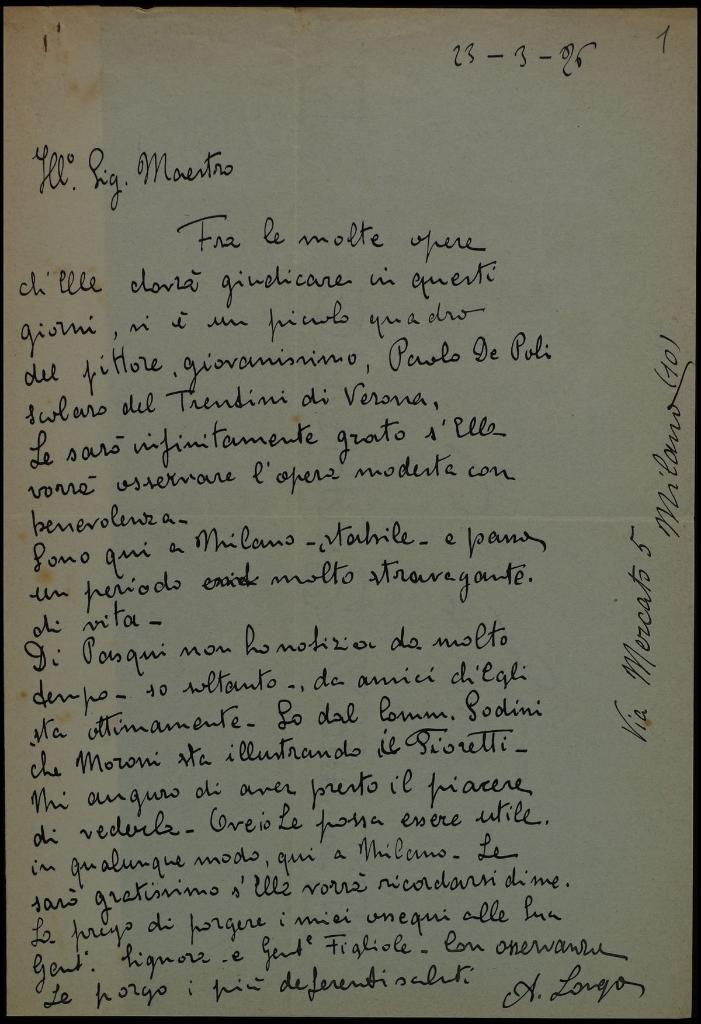 1
23 – 3 – 26
Ill.º Sig. Maestro
Fra le molte opere
ch'Elle dovrà giudicare in questi
giorni, vi è un piccolo quadro
del pittore, giovanissimo, Paolo De Poli
scolaro del Trentini di Verona,
Le sarò infinitamente grato s'Ella
vorrà osservare l'opera modesta con
benevolenza –
Sono qui a Milano – stabile – e passo
un periodo molto stravagante.
di vita –
Di Pasqui non ho notizia da molto
tempo – so soltanto –, da amici ch'Egli
sta ottimamente – So dal Comm. Godini
che Moroni sta illustrando i Fioretti –
Mi auguro di aver presto il piacere
di vederla – Ove io Le possa essere utile.
in qualunque modo, qui a Milano – Le
sarò gratissimo s'Ella vorrà ricordarsi di me.
La prego di porgere i miei ossequi alle Sua
Gent.ᵉ Signora – e Gent.ᵉ Figliole – Con osservanza
Le porgo i più deferenti saluti A. Longo
Via Mercato 5 Milano (10)